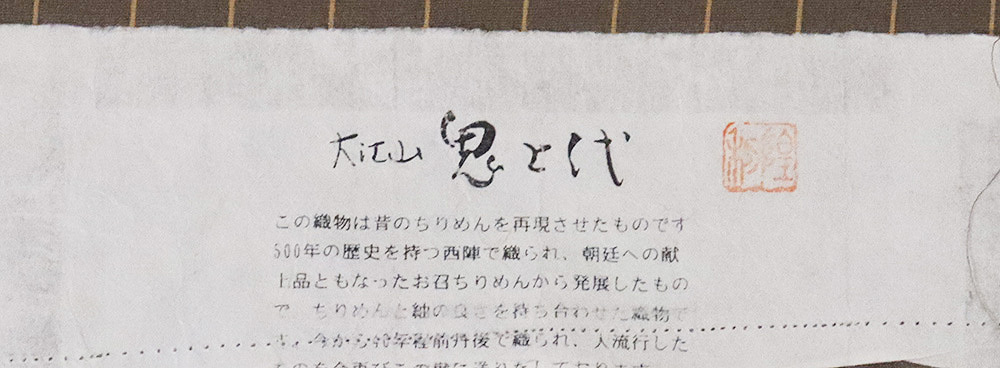 大江山 鬼と代
この織物は昔のちりめんを再現させたものです
500年の歴史を持つ西陣で織られ、朝廷への献
上品ともなったお召ちりめんから発展したもの
で、ちりめんと紬の良さを持ち合わせた織物で
す。今から40年程前丹後で織られ、大流行した
ものを今再びこの世に送りだしております